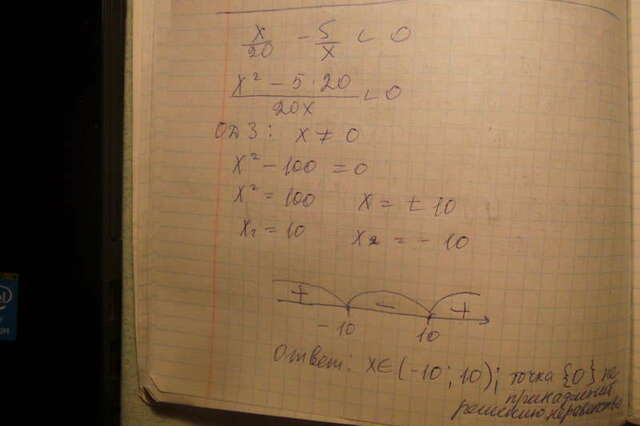 x/20 - 5/x < 0
(x² - 5·20)/20x < 0
ОДЗ: x ≠ 0
x² - 100 = 0
x² = 100 x = ± 10
x₁ = 10 x₂ = - 10
+ - +
-10 10
Ответ: x∈(-10; 10); точка {0} не
принадлежит
решению неравенства